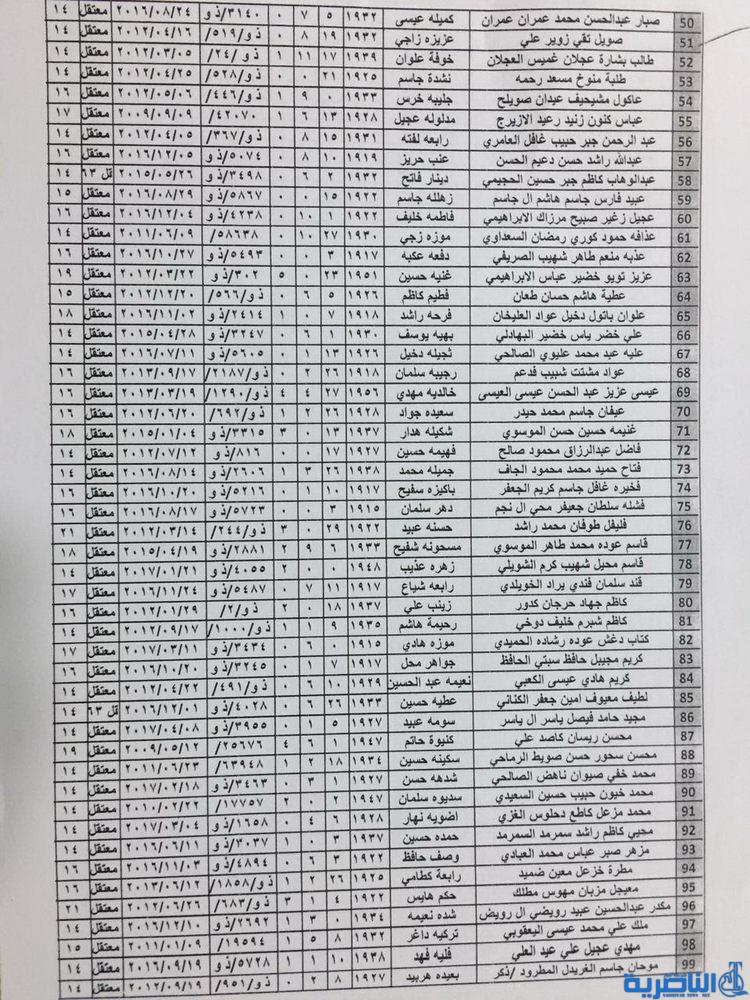 50 صبار عبدالحسن محمد عمران عمران كميله عيسى ١٩٣٢ ٥ ٧ ٠ ٣١٤٠/ذ و ٢٠١٦/٠٨/٢٤ معتقل ١٤
51 صويل تقي زوير علي عزيزه زاجي ١٩٣٢ ١٩ ٨ ٠ ذ و/٥١٩/ ٢٠١٢/٠٤/١٦ معتقل ١٤
52 طالب بشارة عجلان غميس العجلان خوفة علوان ١٩٣٩ ١٧ ١١ ١ ذ و/٢٤/ ٢٠١٢/٠٣/٠٥ معتقل ١٤
53 طلبة منوخ مسعد رحمه نشدة جاسم ١٩٢٥ ٢١ ٠ ٠ ذ و/٥٢٨/ ٢٠١٢/٠٤/٢٥ معتقل ١٤
54 عاكول مشيحيف عيدان صويلح جليبه خرس ١٩٣٣ ٠ ٩ ١ ذ و/٤٤٦/ ٢٠١٢/٠٥/٠٦ معتقل ١٦
55 عباس كنون زنيد رعيد الازيرج مدلوله عجيل ١٩٢٨ ١٣ ٦ ١ ٤٢٠٧٠/ ٢٠٠٩/٠٩/٠٩ معتقل ١٧
56 عبد الرحمن جبر حبيب غافل العامري رابعه لفته ١٩٣١ ١٥ ٨ ٠ ذ و/٣٦٧/ ٢٠١٢/٠٤/٠٥ معتقل ١٤
57 عبدالله راشد حسن دعيم الحسن عنب حريز ١٩١٩ ١٠ ٨ ٠ ٥٠٧٤/ذ و ٢٠١٦/١٢/٠٥ معتقل ١٦
58 عبدالوهاب كاظم جبر حسين الحجيمي دينار فاتح ١٩٣٢ ٢ ٦ ٠ ٣٤٩٨/ذ و ٢٠١٥/٠٥/٢٦ قل ٦٣ ١٤
59 عبيد فارس جاسم هاشم ال جاسم زهلله جاسم ١٩٢٢ ١٥ ٠ ٠ ٥٨٦٧/ذ و ٢٠١٦/٠٨/٢٩ معتقل ١٥
60 عجيل زغير صبيح مرزاك الابراهيمي فاطمه خليف ١٩٢٢ ١ ١٠ ٠ ٤٢٣٨/ذ و ٢٠١٦/١٢/٠٤ معتقل ١٦
61 عذافه حمود كوري رمضان السعداوي موزه زجي ١٩٣٠ ٢٧ ١٠ ٠ ٥٨٦٣٨/ ٢٠١١/٠٦/٠٩ معتقل ١٤
62 عذبه منعم طاهر شهيب الصريفي دفعه عكبه ١٩١٧ ٣ ٠ ٠ ٥٤٩٣/ذ و ٢٠١٦/١٠/٢٧ معتقل ١٦
63 عزيز تويو خضير عباس الابراهيمي غنيه حسين ١٩٥١ ٢٣ ٠ ٥ ٣٠٢/ذ و ٢٠١٢/٠٣/٢٢ معتقل ١٩
64 عطية هاشم حسان طعان فطيم كاظم ١٩٢٦ ٥ ٦ ٠ ذ و/٥٦٦/ ٢٠١٢/١٢/٢٠ معتقل ١٥
65 علوان باتول دخيل عواد العليخان فرحه راشد ١٩١٨ ٧ ٠ ١ ٢٤١٤/ذ و ٢٠١٦/١١/٠٢ معتقل ١٨
66 علي خضر ياس خضير البهادلي بهيه يوسف ١٩٣٠ ١ ٦ ٠ ٣٢٤٧/ذ و ٢٠١٥/٠٤/٢٨ معتقل ١٤
67 عليه عبد محمد عليوي الصالحي ثجيله دخيل ١٩٢٦ ١٣ ١ ٠ ٥٦٠٥/ذ و ٢٠١٦/٠٧/١١ معتقل ١٤
68 عواد مشتت شبيب فدعم رجيبه سلمان ١٩١٨ ٢٢ ٢ ٠ ذ و/٢١٨٧/ ٢٠١٣/٠٩/١٧ معتقل ١٦
69 عيسى عزيز عبد الحسن عيسى العيسى خالديه مهدي ١٩٥٦ ٢٧ ٤ ٤ ذ و/١٢٩٠/ ٢٠١٣/٠٣/١٩ معتقل ١٦
70 عيفان جاسم محمد حيدر سعيده جواد ١٩٢٨ ٢٦ ٢ ١ ذ و/٦٩٢/ ٢٠١٢/٠٦/٢٠ معتقل ١٦
71 غنيمه حسين حسن الموسوي شكيله هدار ١٩٣٧ ١٣ ٠ ٣ ٣٣١٥/ذ و ٢٠١٥/٠١/٠٤ معتقل ١٨
72 فاضل عبدالرزاق محمود صالح فهيمه حسين ١٩٢٧ ١٧ ٠ ٠ ٨١٦/ذ و ٢٠١٢/٠٧/١٢ معتقل ١٤
73 فتاح حميد محمد محمود الجاف جميله محمد ١٩٣٨ ٢٦ ٣ ١ ٢٦٠٦/ذ و ٢٠١٦/٠٨/١٤ معتقل ١٤
74 فخيره غافل جاسم كريم الجعفر باكيزه سفيح ١٩١٧ ١٠ ١ ٠ ٥٢١٦/ذ و ٢٠١٦/١٠/٢٠ معتقل ١٦
75 فشله سلطان جعيفر محي ال نجم دهر سلمان ١٩١٥ ٣ ٠ ٠ ٥٧٢٣/ذ و ٢٠١٦/٠٨/١٧ معتقل ١٦
76 فليفل طوفان محمد راشد حسنه عبيد ١٩٢٢ ٢٩ ٠ ٣ ذ و/٢٤٤/ ٢٠١٢/٠٣/١٤ معتقل ٢١
77 قاسم عوده محمد طاهر الموسوي مسحونه شفيح ١٩٣٣ ٦ ٩ ٢ ٢٨٨١/ذ و ٢٠١٥/٠٤/١٩ معتقل ١٨
78 قاسم محيل شهيب كرم الشويلي زهره عذيب ١٩٤٨ ٠ ٠ ٢ ٤٠٥٥/ذ و ٢٠١٧/٠١/٢١ معتقل ١٤
79 قند سلمان فندي يراد الخويلدي رابعه شياع ١٩١٧ ١١ ٧ ٠ ٥٤٨٧/ذ و ٢٠١٦/١١/٢٤ معتقل ١٧
80 كاظم جهاد حرجان كدور زينب علي ١٩٣٧ ١٨ ٠ ٢ ذ و/٢/ ٢٠١٢/٠١/٢٩ معتقل ١٦
81 كاظم شبرم خليف دوخي رحيمة هاشم ١٩٣٥ ٩ ١ ١ ذ و/١٠٠٠/ ٢٠١٢/٠٩/١٧ معتقل ١٤
82 كتاب دغش عوده رشاده الحميدي موزه هادي ١٩١٥ ٠ ٦ ٠ ٣٤٣٤/ذ و ٢٠١٧/٠٣/١١ معتقل ١٧
83 كريم مجيبل حافظ سبتي الحافظ جواهر محل ١٩١٧ ٧ ٠ ١ ٣٢٤٥/ذ و ٢٠١٦/١٠/٢٠ معتقل ١٦
84 كريم هادي عيسى الكعبي نعيمه عبد الحسين ١٩٢٩ ١٠ ٦ ٠ ذ و/٤٩١/ ٢٠١٢/٠٤/٢٢ معتقل ١٤
85 لطيف معيوف امين جعفر الكناني عطيه حسين ١٩٣٣ ٢٦ ٦ ٠ ٤٠٢٨/ذ و ٢٠١٦/١٢/٠١ قل ٦٣ ١٤
86 مجيد حامد فيصل ياسر ال ياسر سومه عبيد ١٩٢٧ ٥ ١ ٠ ٣٩٥٥/ذ و ٢٠١٧/٠٤/٠٨ معتقل ١٤
87 محسن ريسان كاصد علي كنيوة حاتم ١٩٤٧ ١ ٦ ٤ ٢٥٦٧٦/ ٢٠٠٩/٠٥/١٢ معتقل ١٩
88 محسن سحور حسن صويط الرماحي سكينه حسين ١٩٣٤ ١٨ ٢ ١ ٦٣٩٤٨/ ٢٠١١/٠٦/٢٣ معتقل ١٤
89 محمد خفي صيوان ناهض الصالحي شدهه حسن ١٩٢٧ ١ ٣ ٠ ٣٤٦٣/ذ و ٢٠١٧/٠٢/١٨ معتقل ١٤
90 محمد خيون حبيب حسين السعيدي سديوه سلمان ١٩٤٧ ٢ ٠ ٢ ١٧٧٥٧/ ٢٠١٠/٠٢/٢٢ معتقل ١٤
91 محمد مزعل كاطع دحلوس الغزي اضويه نهار ١٩٢٨ ٦ ٤ ٠ ١٦٥٨/ذ و ٢٠١٧/٠٣/٠٤ معتقل ١٤
92 محيي كاظم راشد سمرمد السمرمد حمده حسين ١٩٣٧ ٣ ٠ ١ ٣٠٣٧/ذ و ٢٠١٦/٠٦/١١ معتقل ١٤
93 مزهر صبر عباس محمد العبادي وصف حافظ ١٩٢٢ ٣ ٦ ٠ ٤٨٩٤/ذ و ٢٠١٦/١١/٠٣ معتقل ١٦
94 مطرة خزعل معين ضميد رابعة كطامي ١٩٢٥ ٢٦ ٢ ١ ذ و/١٨٥٨/ ٢٠١٣/٠٦/١٢ معتقل ١٦
95 معيجل مزبان مهوس مطلك حكم هايس ١٩٢٢ ٤ ١ ٣ ذ و/٦٨٣/ ٢٠١٢/٠٦/٢٦ معتقل ٢١
96 مكدر عبدالحسين عبيد رويضي ال رويض شده نعيمه ١٩٣٤ ٠ ٣ ١ ٢٦٩٢/ذ و ٢٠١٦/١٢/١٠ معتقل ١٤
97 ملك علي محمد عيسى اليعقوبي تركيه داغر ١٩٣٢ ٨ ٥ ١ ١٩٥٩٤/ ٢٠١١/٠١/٠٩ معتقل ١٥
98 مهدي عجيل علي عبد العلي فليه فهد ١٩٣٨ ١٠ ١ ١ ٥٧٢٨/ذ و ٢٠١٦/٠٩/١٩ معتقل ١٤
99 موحان جاسم الغريدل المطرود /ذكر بعيده هربيد ١٩٢٧ ٨ ٢ ٠ ذ و/٩٥١/ ٢٠١٢/٠٩/١٩ معتقل ١٤
الناصرية